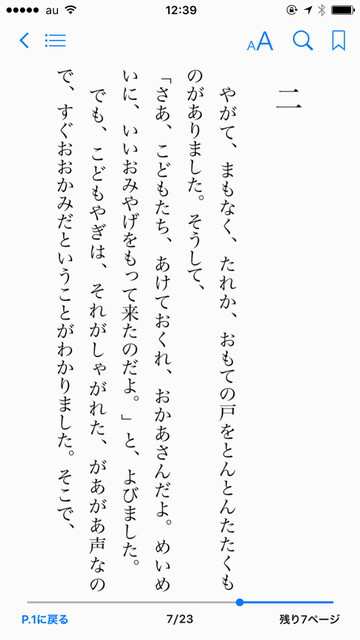 au 12:39
AA
二
やがて、まもなく、たれか、おもての戸をとんとんたたくも
のがありました。そうして、
「さあ、こどもたち、あけておくれ、おかあさんだよ。めいめ
いに、いいおみやげをもって来たのだよ。」と、よびました。
でも、こどもやぎは、それがしゃがれた、があがあ声なの
で、すぐおおかみだということがわかりました。そこで、
P.1に戻る 7/23 残り7ページ